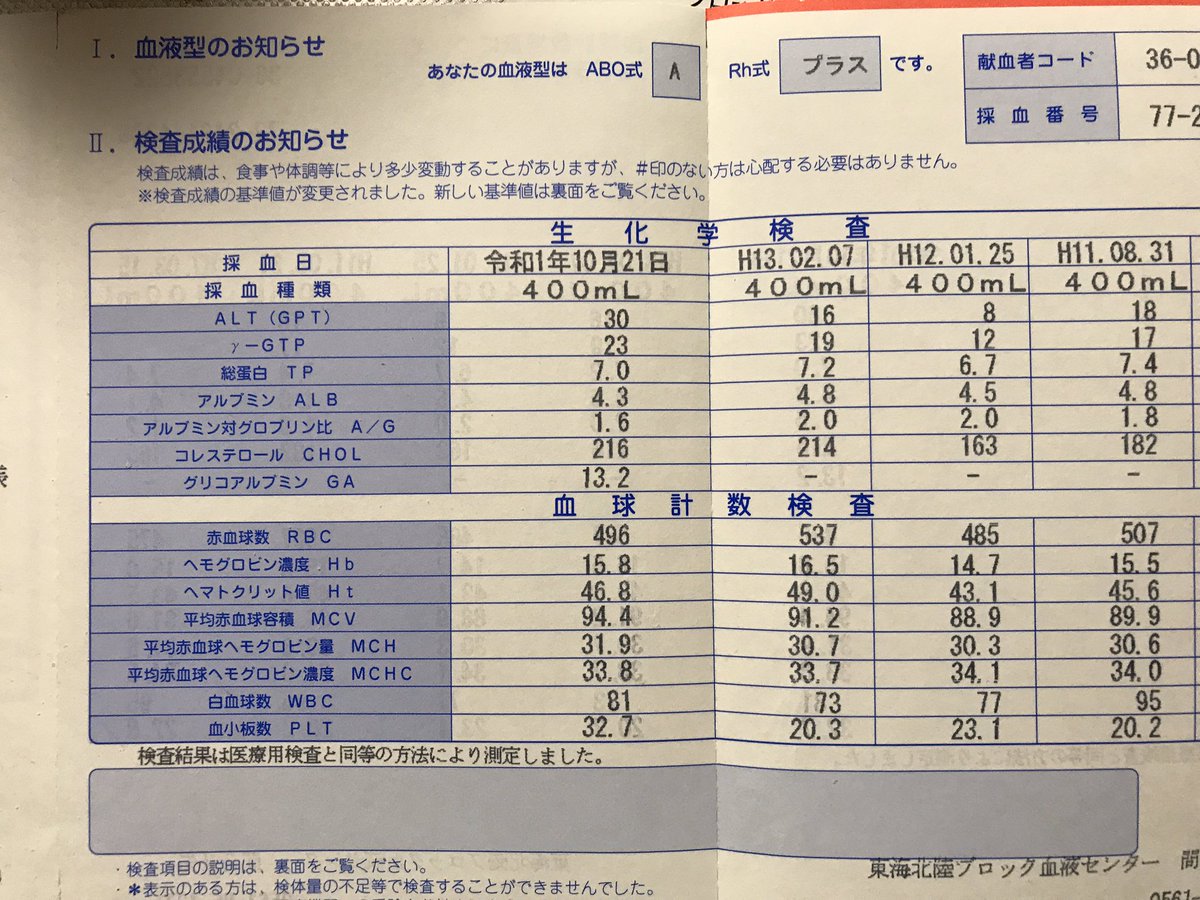 Ⅰ. 血液型のお知らせ
あなたの血液型は ABO式 A Rh式 プラス です。
献血者コード 36-0
採血番号 77-2
Ⅱ. 検査成績のお知らせ
検査成績は、食事や体調等により多少変動することがありますが、#印のない方は心配する必要はありません。
※検査成績の基準値が変更されました。新しい基準値は裏面をご覧ください。
生化学検査
採血日 令和1年10月21日 H13.02.07 H12.01.25 H11.08.31
採血種類 400mL 400mL 400mL 400mL
ALT(GPT) 30 16 8 18
γ-GTP 23 19 12 17
総蛋白 TP 7.0 7.2 6.7 7.4
アルブミン ALB 4.3 4.8 4.5 4.8
アルブミン対グロブリン比 A/G 1.6 2.0 2.0 1.8
コレステロール CHOL 216 214 163 182
グリコアルブミン GA 13.2 - - -
血球計数検査
赤血球数 RBC 496 537 485 507
ヘモグロビン濃度 Hb 15.8 16.5 14.7 15.5
ヘマトクリット値 Ht 46.8 49.0 43.1 45.6
平均赤血球容積 MCV 94.4 91.2 88.9 89.9
平均赤血球ヘモグロビン量 MCH 31.9 30.7 30.3 30.6
平均赤血球ヘモグロビン濃度 MCHC 33.8 33.7 34.1 34.0
白血球数 WBC 81 73 77 95
血小板数 PLT 32.7 20.3 23.1 20.2
検査結果は医療用検査と同等の方法により測定しました。
・検査項目の説明は、裏面をご覧ください。
・*表示のある方は、検体量の不足等で検査することができませんでした。
東海北陸ブロック血液センター 間
0561-